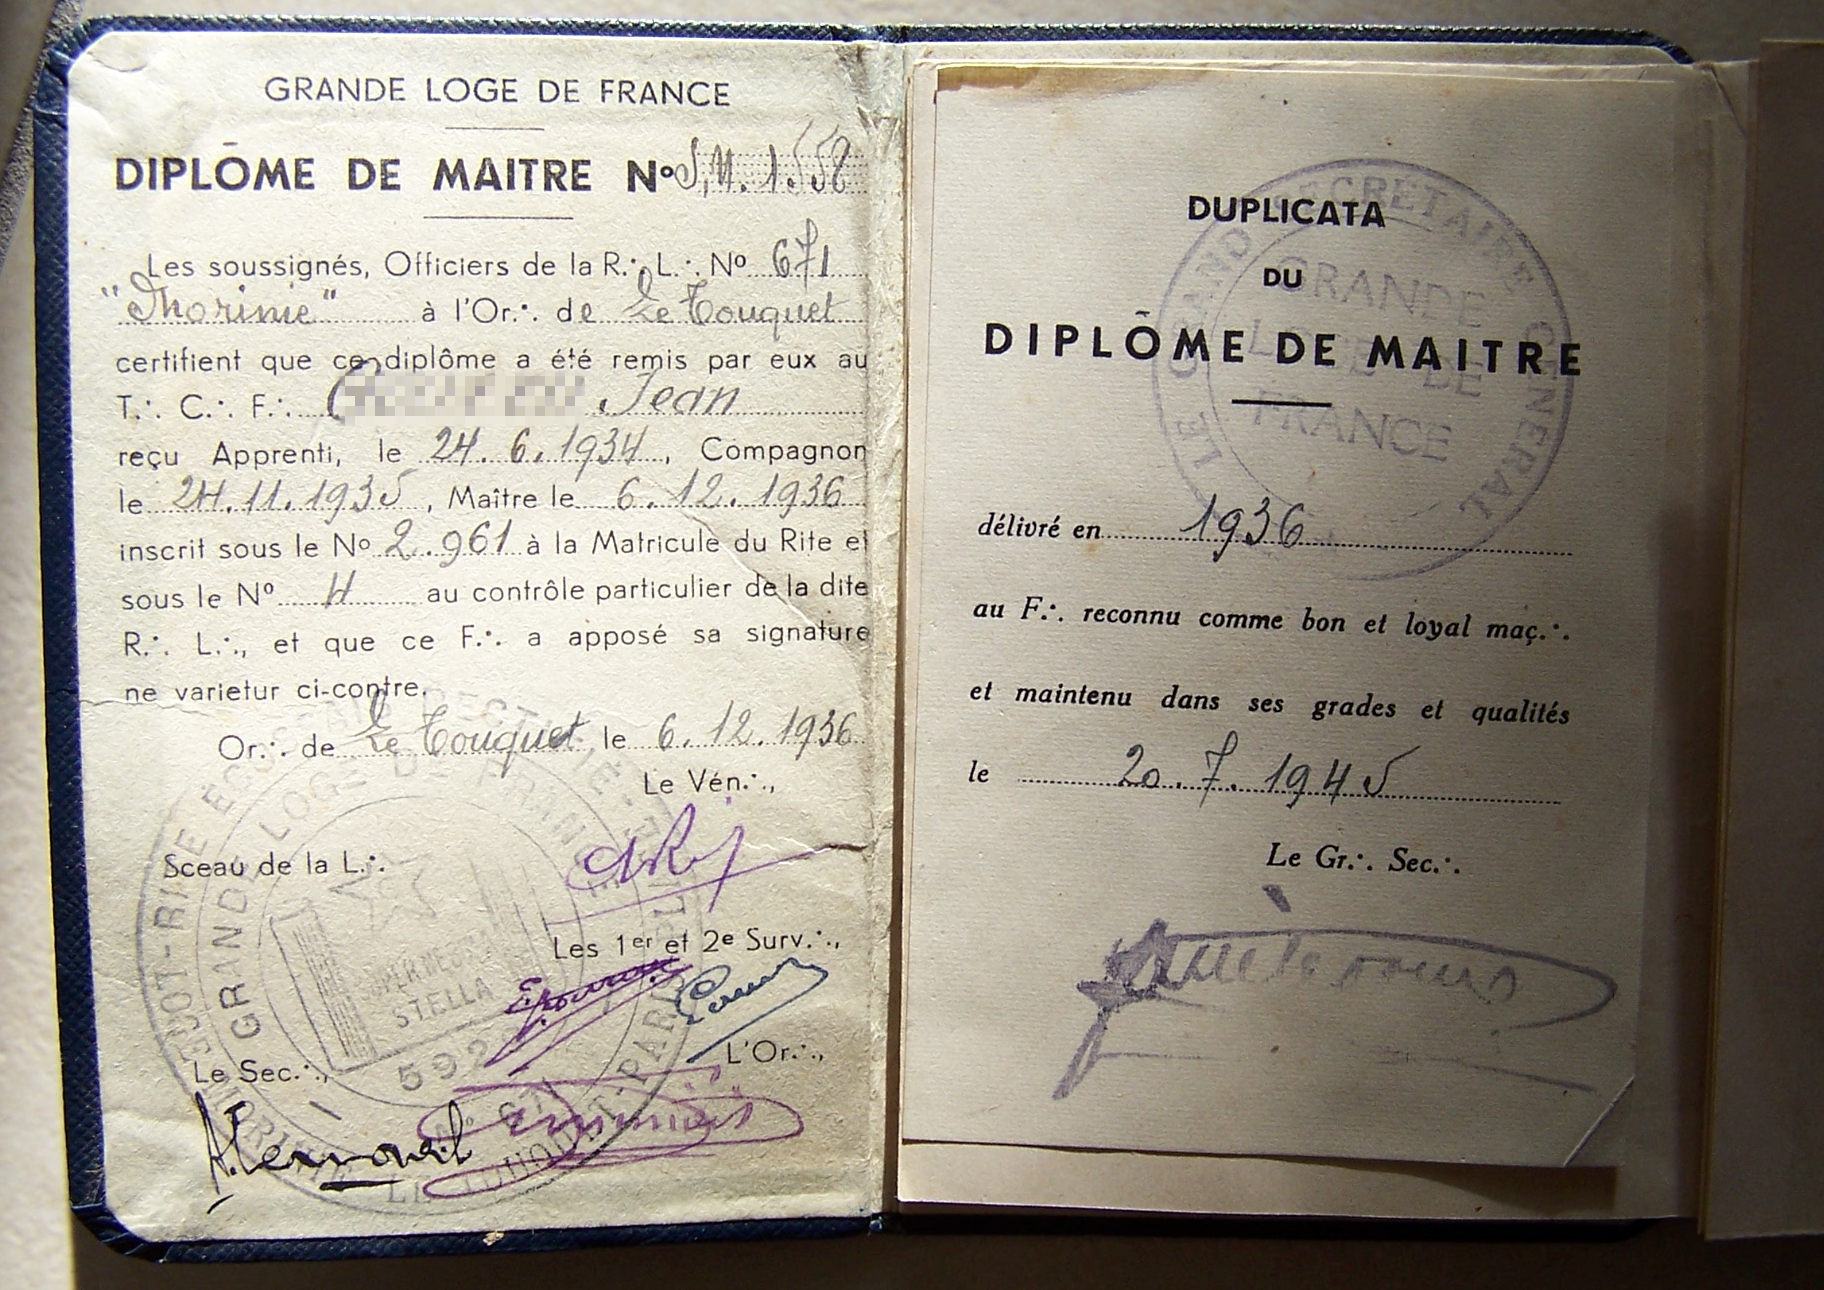 GRANDE LOGE DE FRANCE
DIPLÔME DE MAITRE No S.M. 1.558
Les soussignés, Officiers de la R∴ L∴ No 671
"Thorinie" à l'Or∴ de Le Touquet
certifient que ce diplôme a été remis par eux au
T∴ C∴ F∴ Jean
reçu Apprenti, le 24.6.1934, Compagnon
le 24.11.1935, Maître le 6.12.1936
inscrit sous le No 2.961 à la Matricule du Rite et
sous le No 4 au contrôle particulier de la dite
R∴ L∴, et que ce F∴ a apposé sa signature
ne varietur ci-contre.
Or∴ de Le Touquet, le 6.12.1936
Le Vén∴,
Sceau de la L∴
Les 1er et 2e Surv∴,
Le Sec∴,
L'Or∴,
GRANDE LOGE DE FRANCE
STELLA
592
DUPLICATA
DU
DIPLÔME DE MAITRE
délivré en 1936
au F∴ reconnu comme bon et loyal maç∴
et maintenu dans ses grades et qualités
le 20.7.1945
Le Gr∴ Sec∴
LE GRAND SECRETAIRE GENERAL
GRANDE
LOGE DE
FRANCE